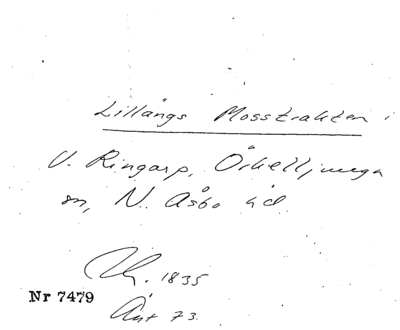 Lillängs Mosstrakten i
V. Ringarp, Örkelljunga
sn, N. Åsbo hd
1835
Nr 7479
Ant 73.